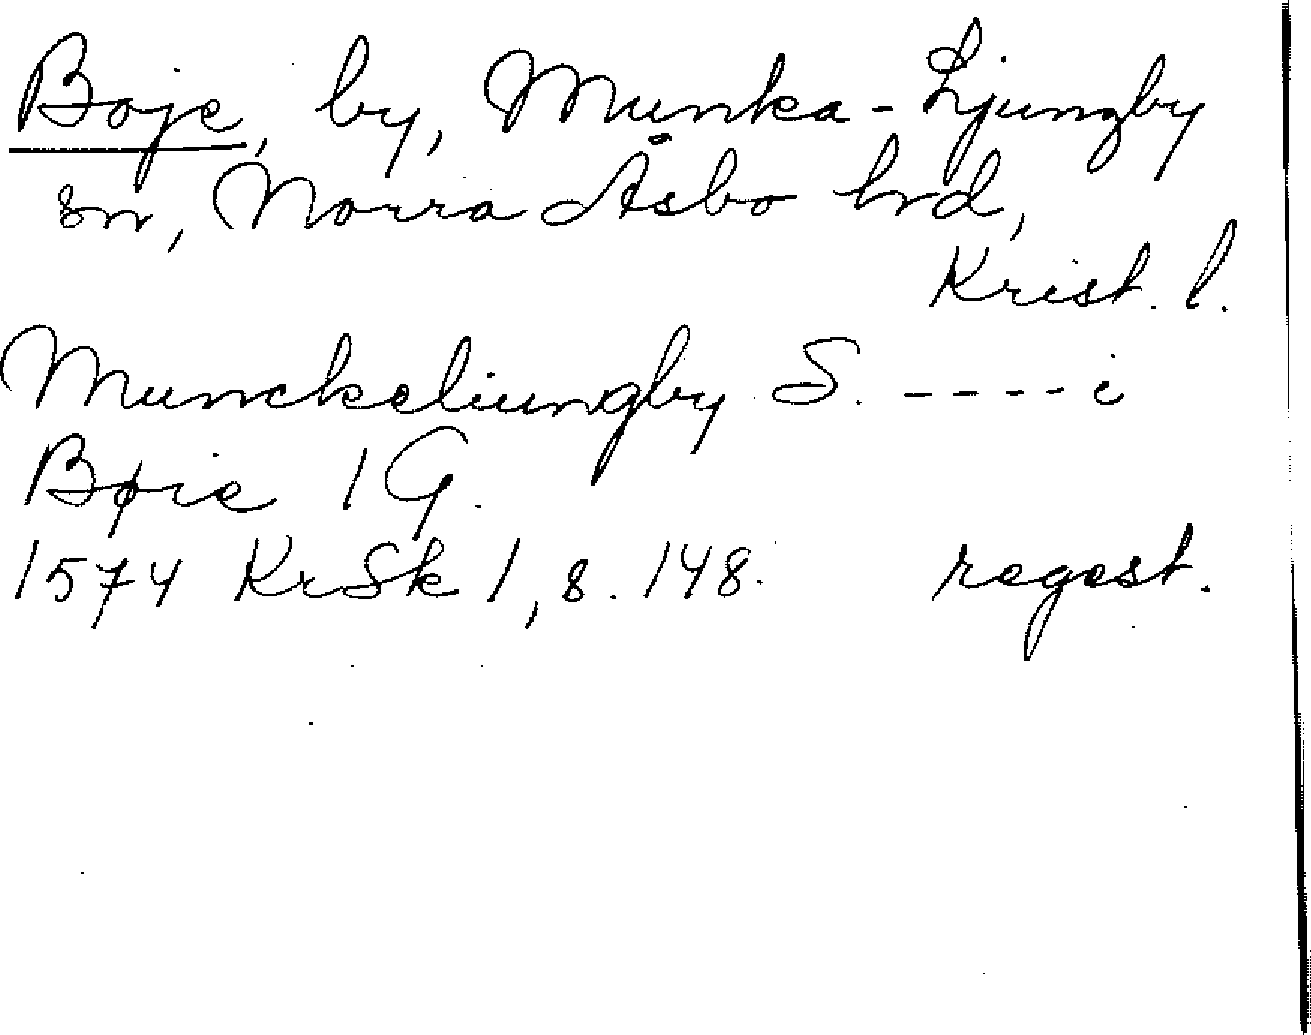 Boje, by, Munka-Ljungby
sn, Norra Åsbo hrd,
Krist. l.
Munckeliungby S. ----i
Bøie 1 G.
1574 KrSk 1, s. 148. regest.